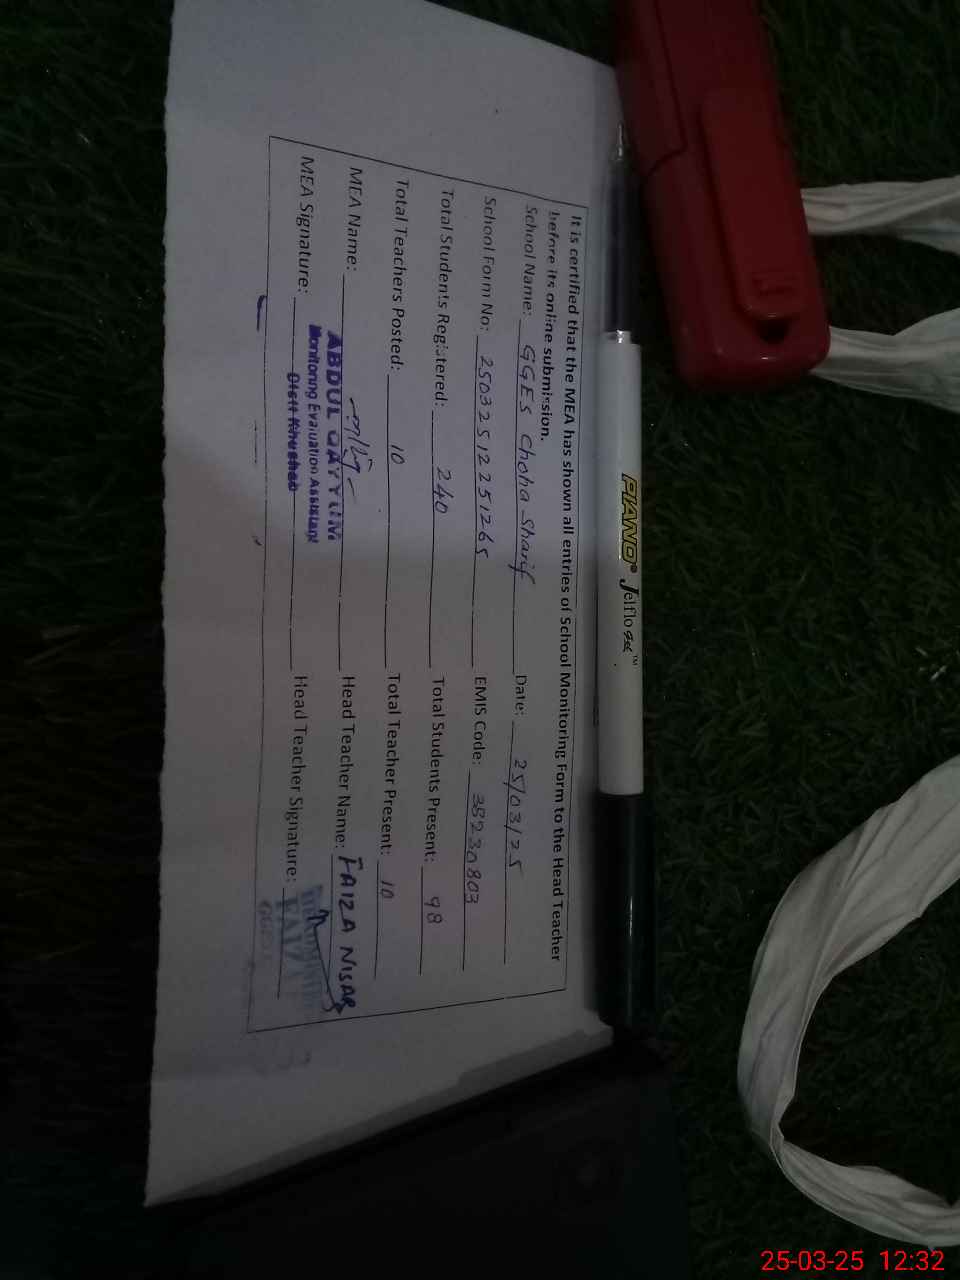 It is certified that the MEA has shown all entries of School Monitoring Form to the Head Teacher
before its online submission.
School Name: GGES Choha Sharif Date: 25/03/25
School Form No: 25032512251265 EMIS Code: 38230803
Total Students Registered: 240 Total Students Present: 98
Total Teachers Posted: 10 Total Teacher Present: 10
MEA Name: Head Teacher Name: FAIZA NISAR
ABDUL QAYYUM
MEA Signature: Head Teacher Signature:
Monitoring Evaluation Assistant
Distt Khushab
PIANO® Jelflo Gel™
25-03-25 12:32